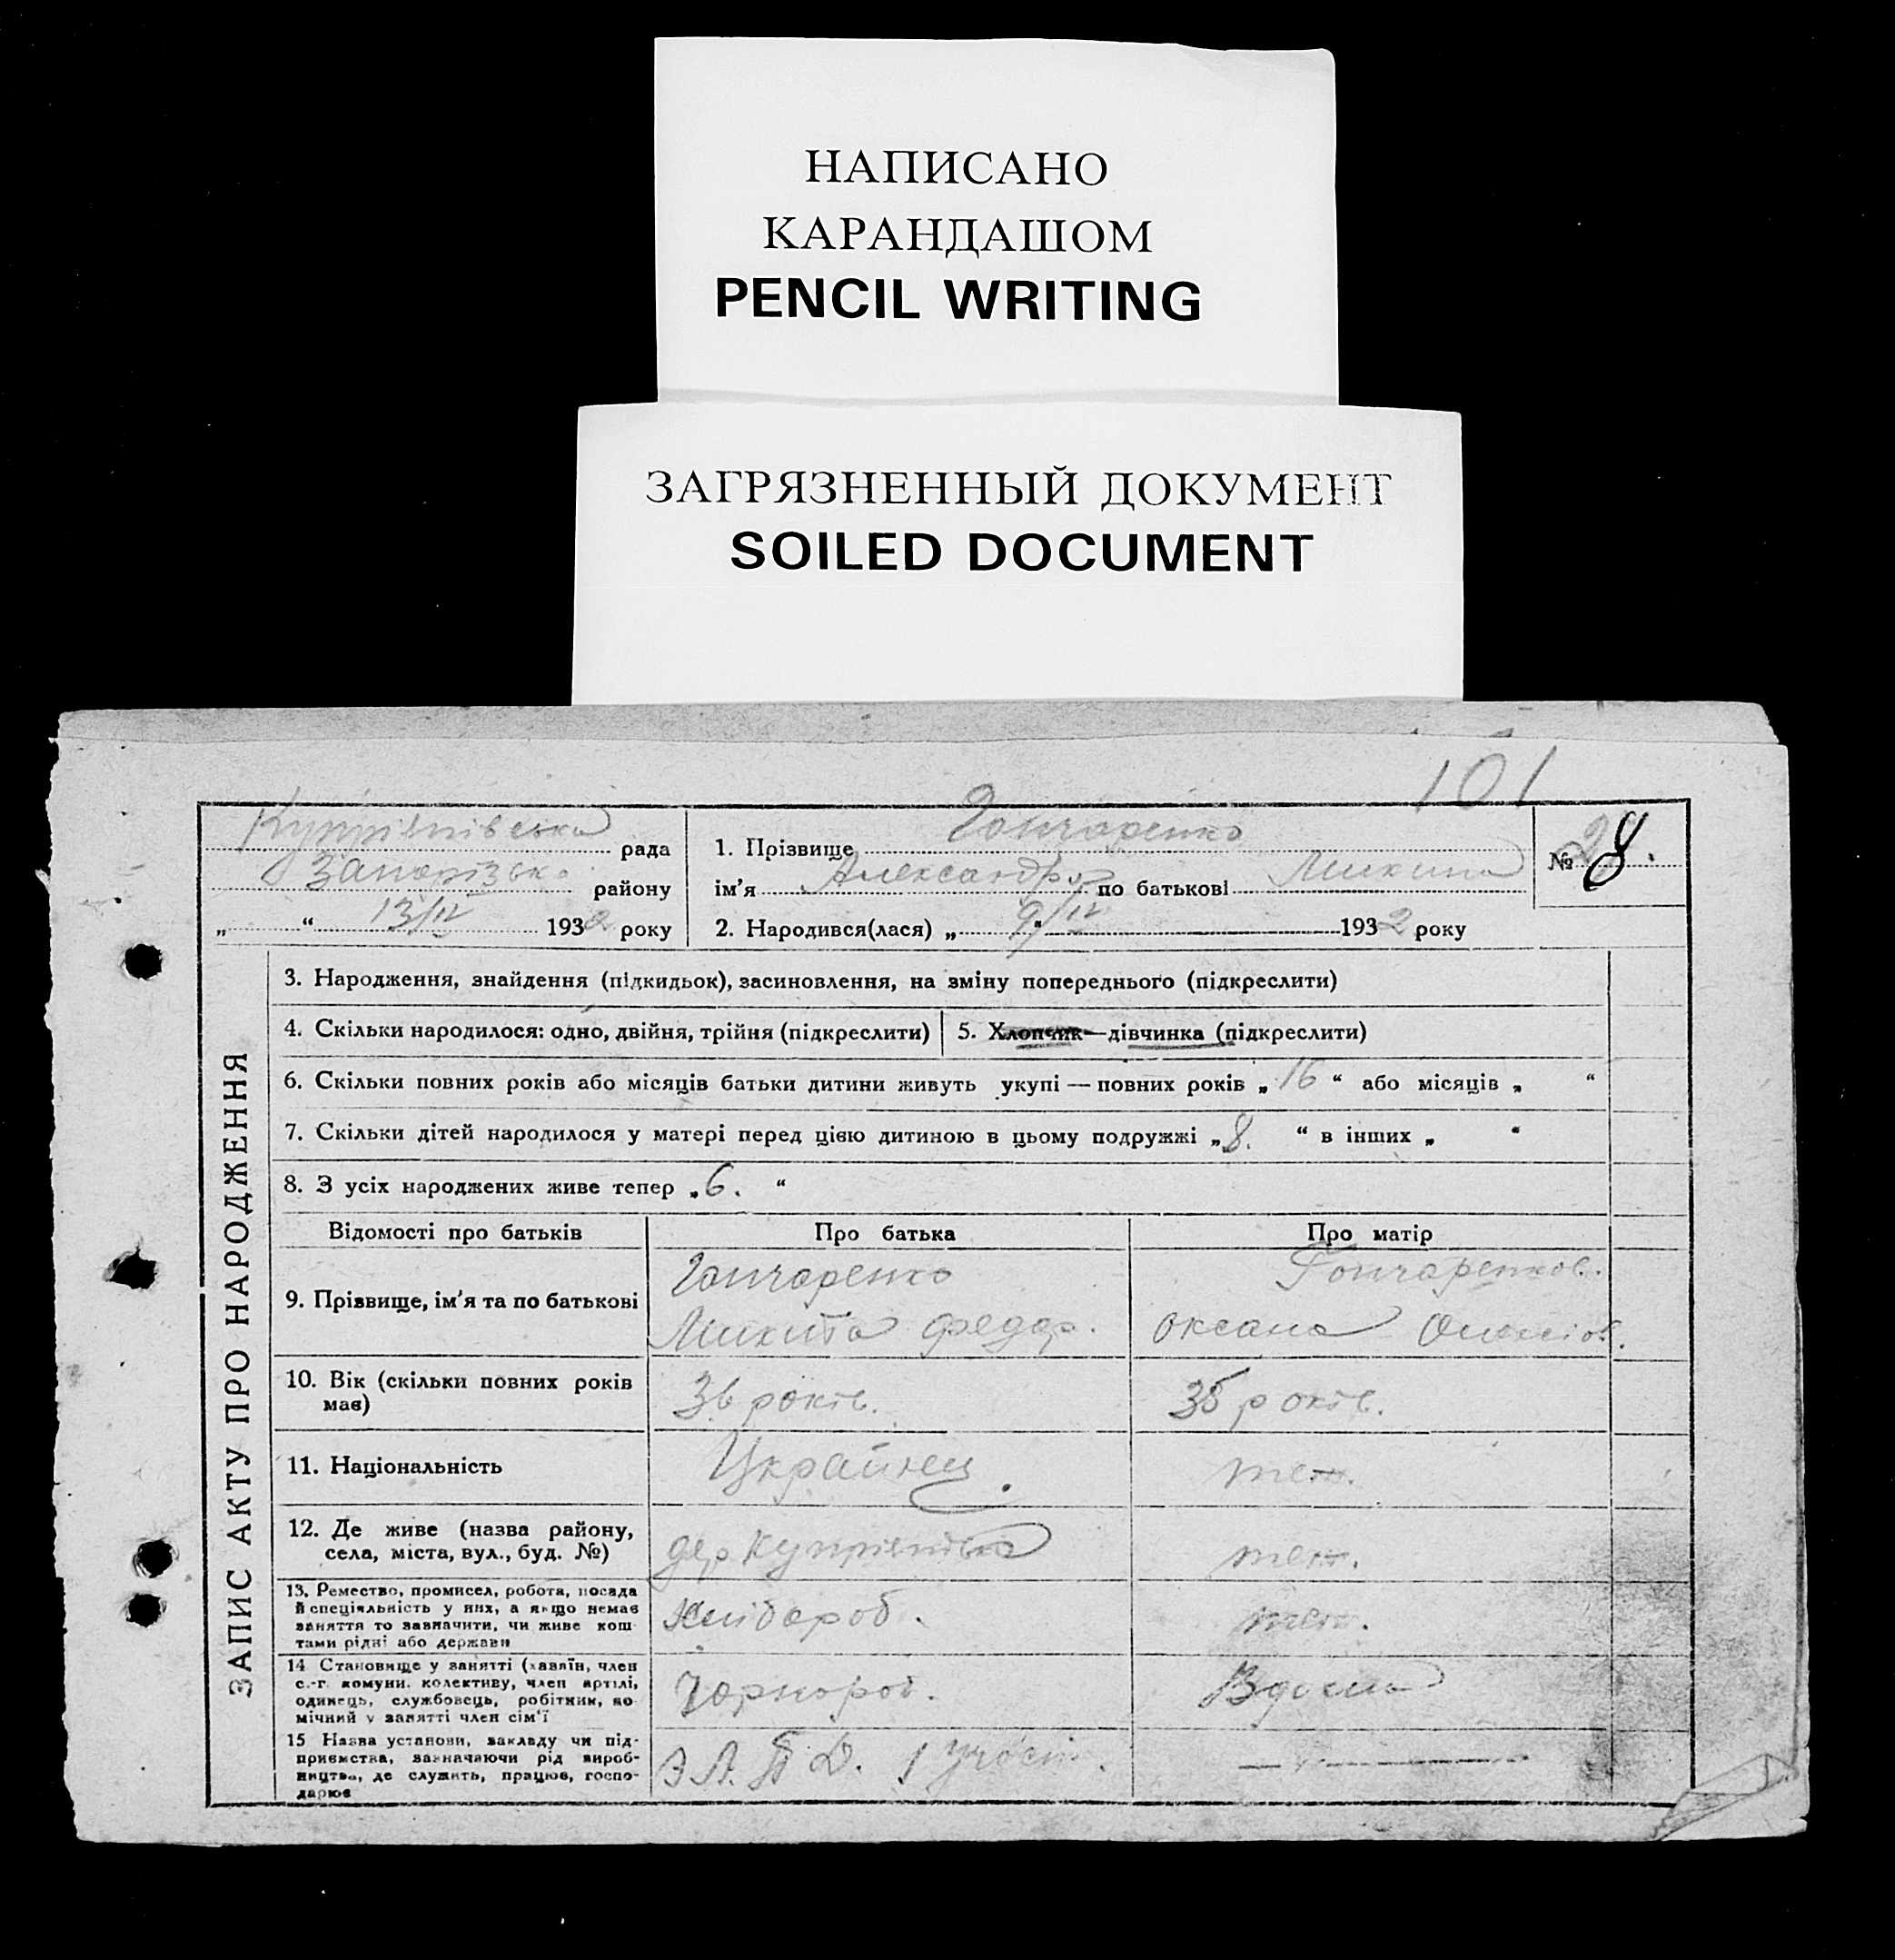 НАПИСАНО
КАРАНДАШОМ
PENCIL WRITING
ЗАГРЯЗНЕННЫЙ ДОКУМЕНТ
SOILED DOCUMENT
101
рада
Запорізько району
„ “ 13/IV 1932 року
1. Прізвище Гончаренко
ім'я Александра по батькові Микита
2. Народився(лася) „ 9/IV “ 1932 року
№ 28.
ЗАПИС АКТУ ПРО НАРОДЖЕННЯ
3. Народження, знайдення (підкидьок), засиновлення, на зміну попереднього (підкреслити)
4. Скільки народилося: одно, двійня, трійня (підкреслити)
5. Хлопчик—дівчинка (підкреслити)
6. Скільки повних років або місяців батьки дитини живуть укупі — повних років „ 16 “ або місяців „ “
7. Скільки дітей народилося у матері перед цією дитиною в цьому подружжі „ 8. “ в інших „ “
8. З усіх народжених живе тепер „ 6. “
Відомості про батьків Про батька Про матір
9. Прізвище, ім'я та по батькові
Гончаренко
Микита Федор.
Гончаренков.
Оксана
10. Вік (скільки повних років
має)
36 років.
35 років.
11. Національність
Українец.
теж.
12. Де живе (назва району,
села, міста, вул., буд. №)
дер
теж.
13. Ремество, промисел, робота, посада
й спеціяльність у них, а якщо немає
заняття то зазначити, чи живе кош-
тами рідні або держави
Хлібороб.
теж.
14 Становище у занятті (хазяїн, член
с.-г. комуни, колективу, член артілі,
одинець, службовець, робітник, по-
мічний у занятті член сім'ї
Чорнороб.
Вдома
15 Назва установи, закладу чи під-
приємства, зазначаючи рід вироб-
ництва, де служить, працює, госпо-
дарює